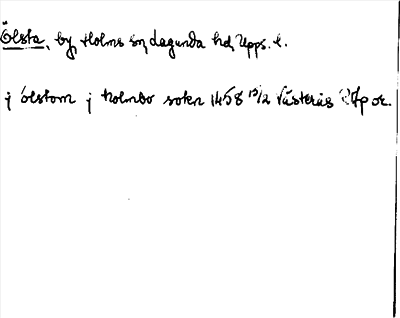 Ölsta, by, Holms sn, Lagunda hd, Upps. l.
j ölstom j holmbo sokn 1458 13/2 Västerås RAp or.